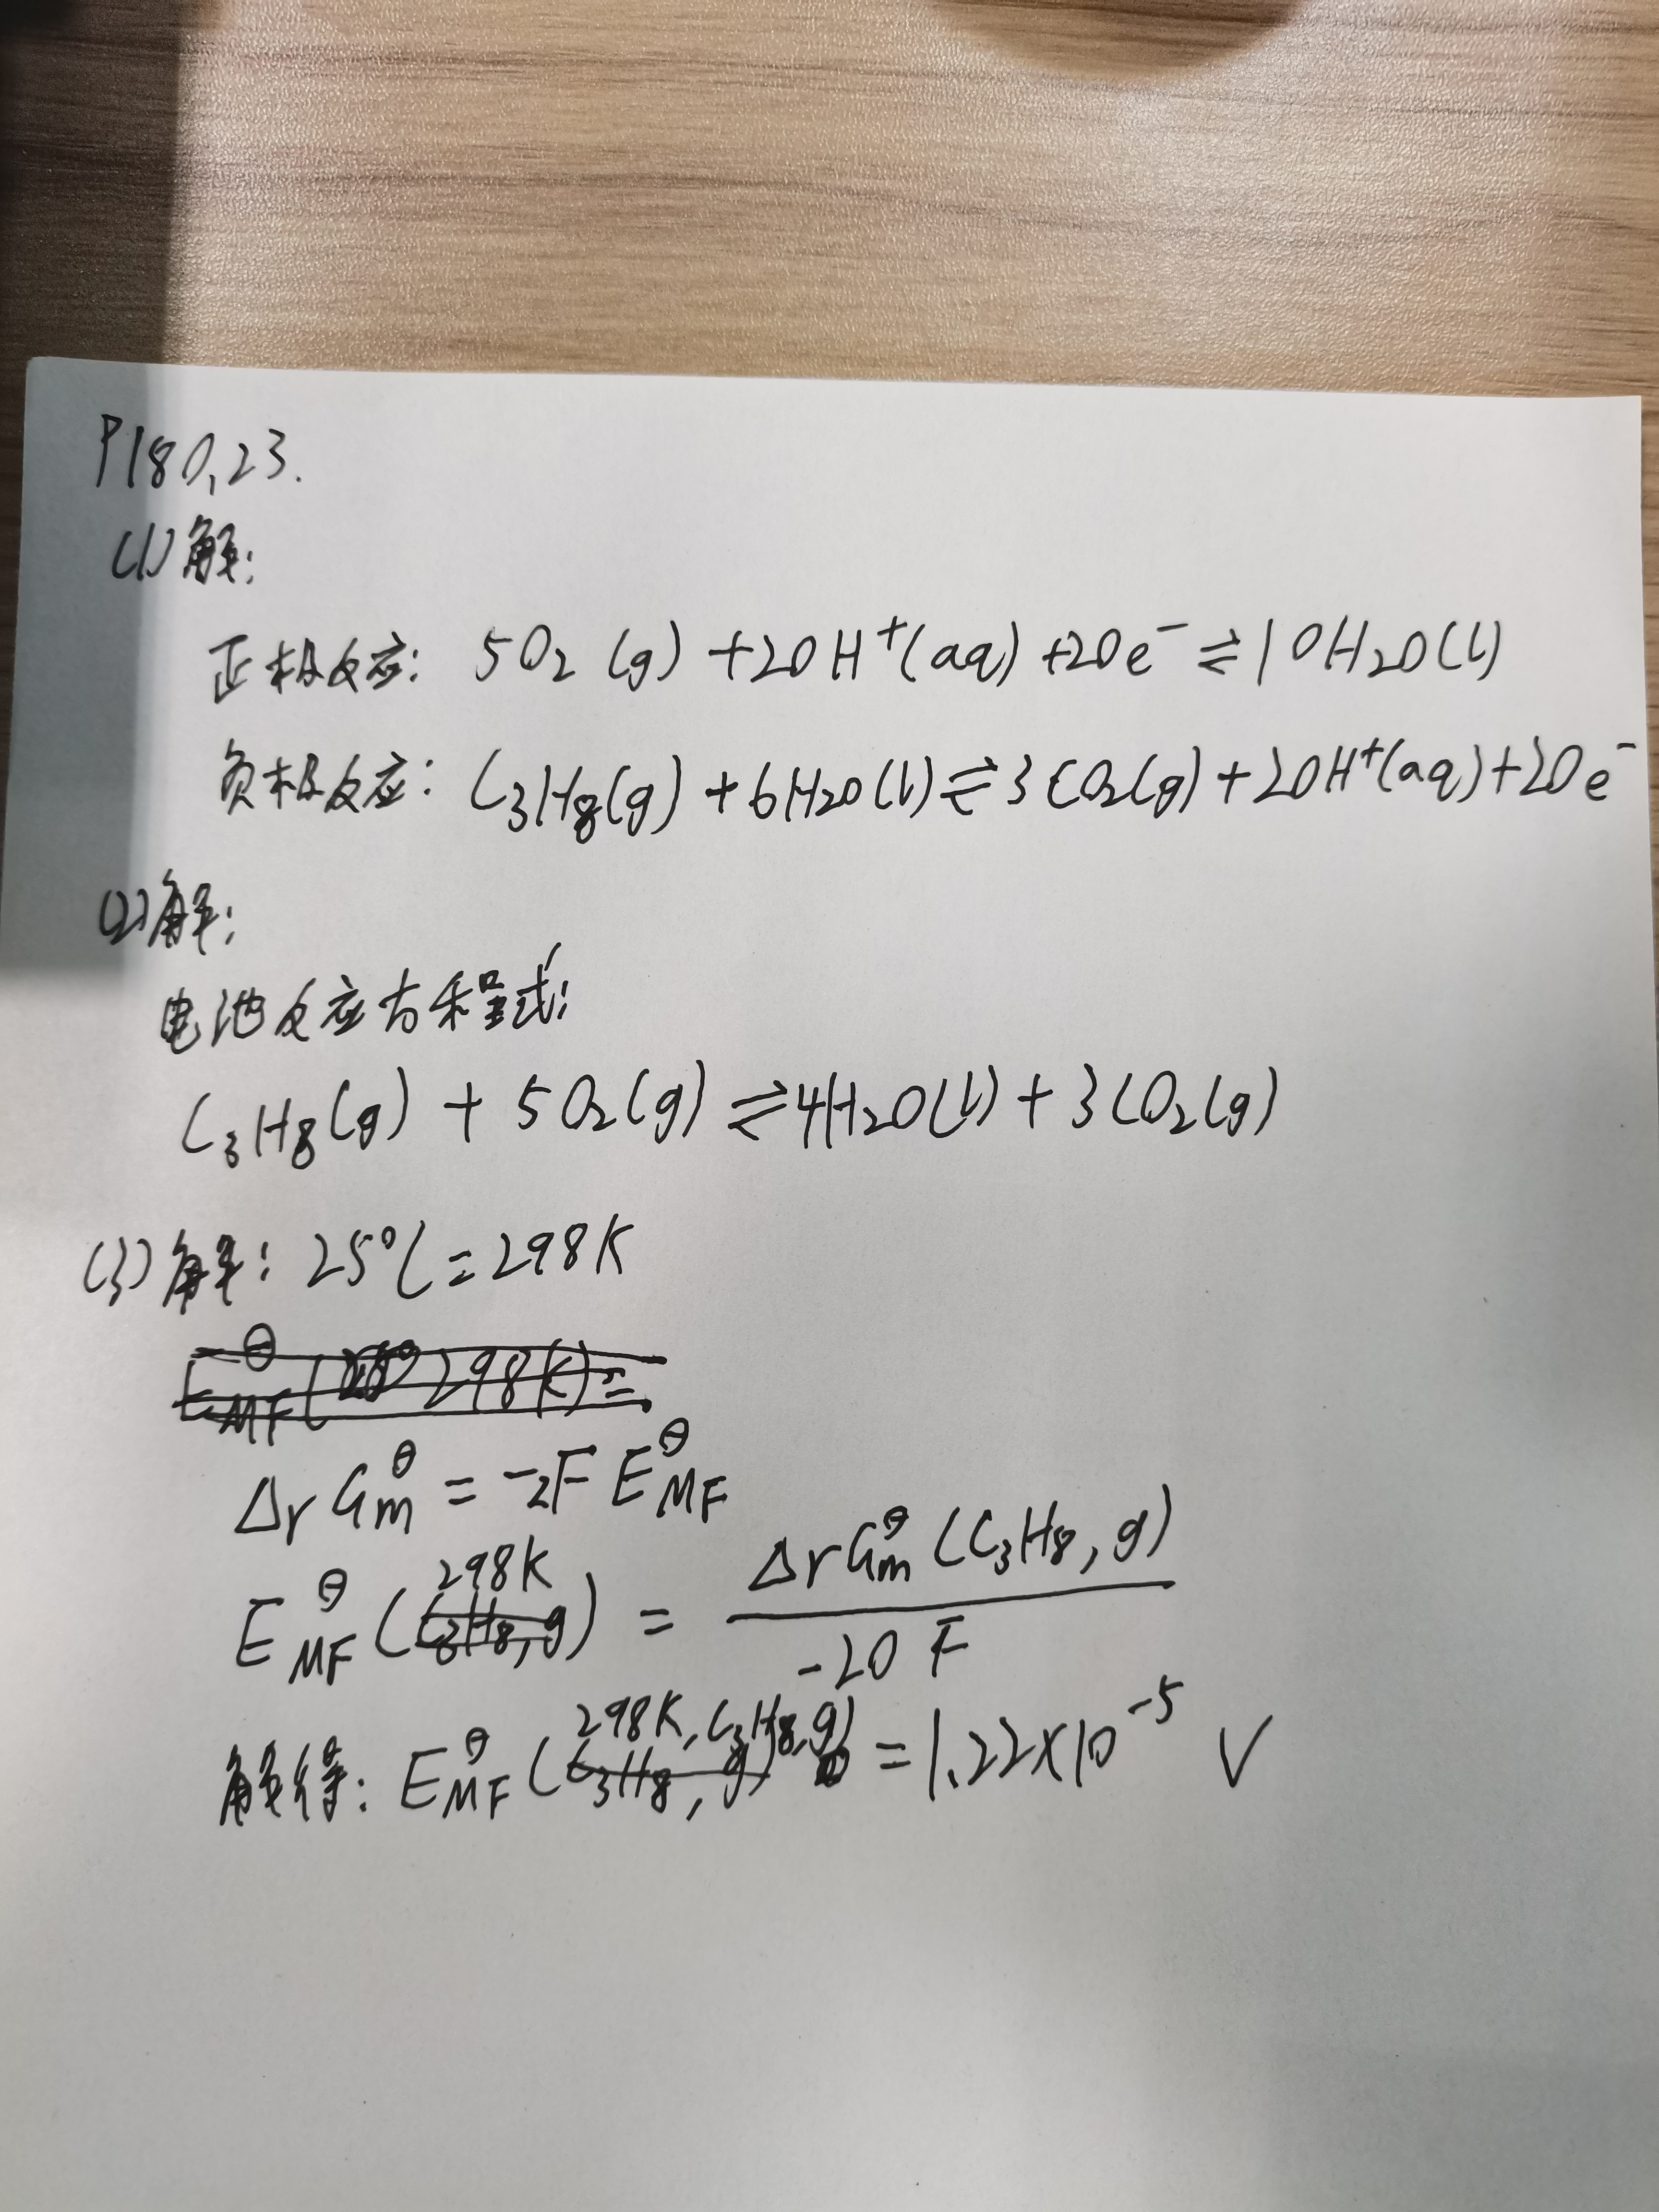 P180,23.
(1)解:
正极反应: 5O₂(g)+20H⁺(aq)+20e⁻⇌10H₂O(l)
负极反应: C₃H₈(g)+6H₂O(l)⇌3CO₂(g)+20H⁺(aq)+20e⁻
(2)解:
电池反应方程式:
C₃H₈(g) + 5O₂(g) ⇌ 4H₂O(l) + 3CO₂(g)
(3)解: 25℃=298K
ΔrGm^θ = -zF E_MF^θ
E_MF^θ(298K) = ΔrGm^θ(C₃H₈,g) / -20F
解得: E_MF^θ(298K,C₃H₈,g) = 1.22×10⁻⁵ V